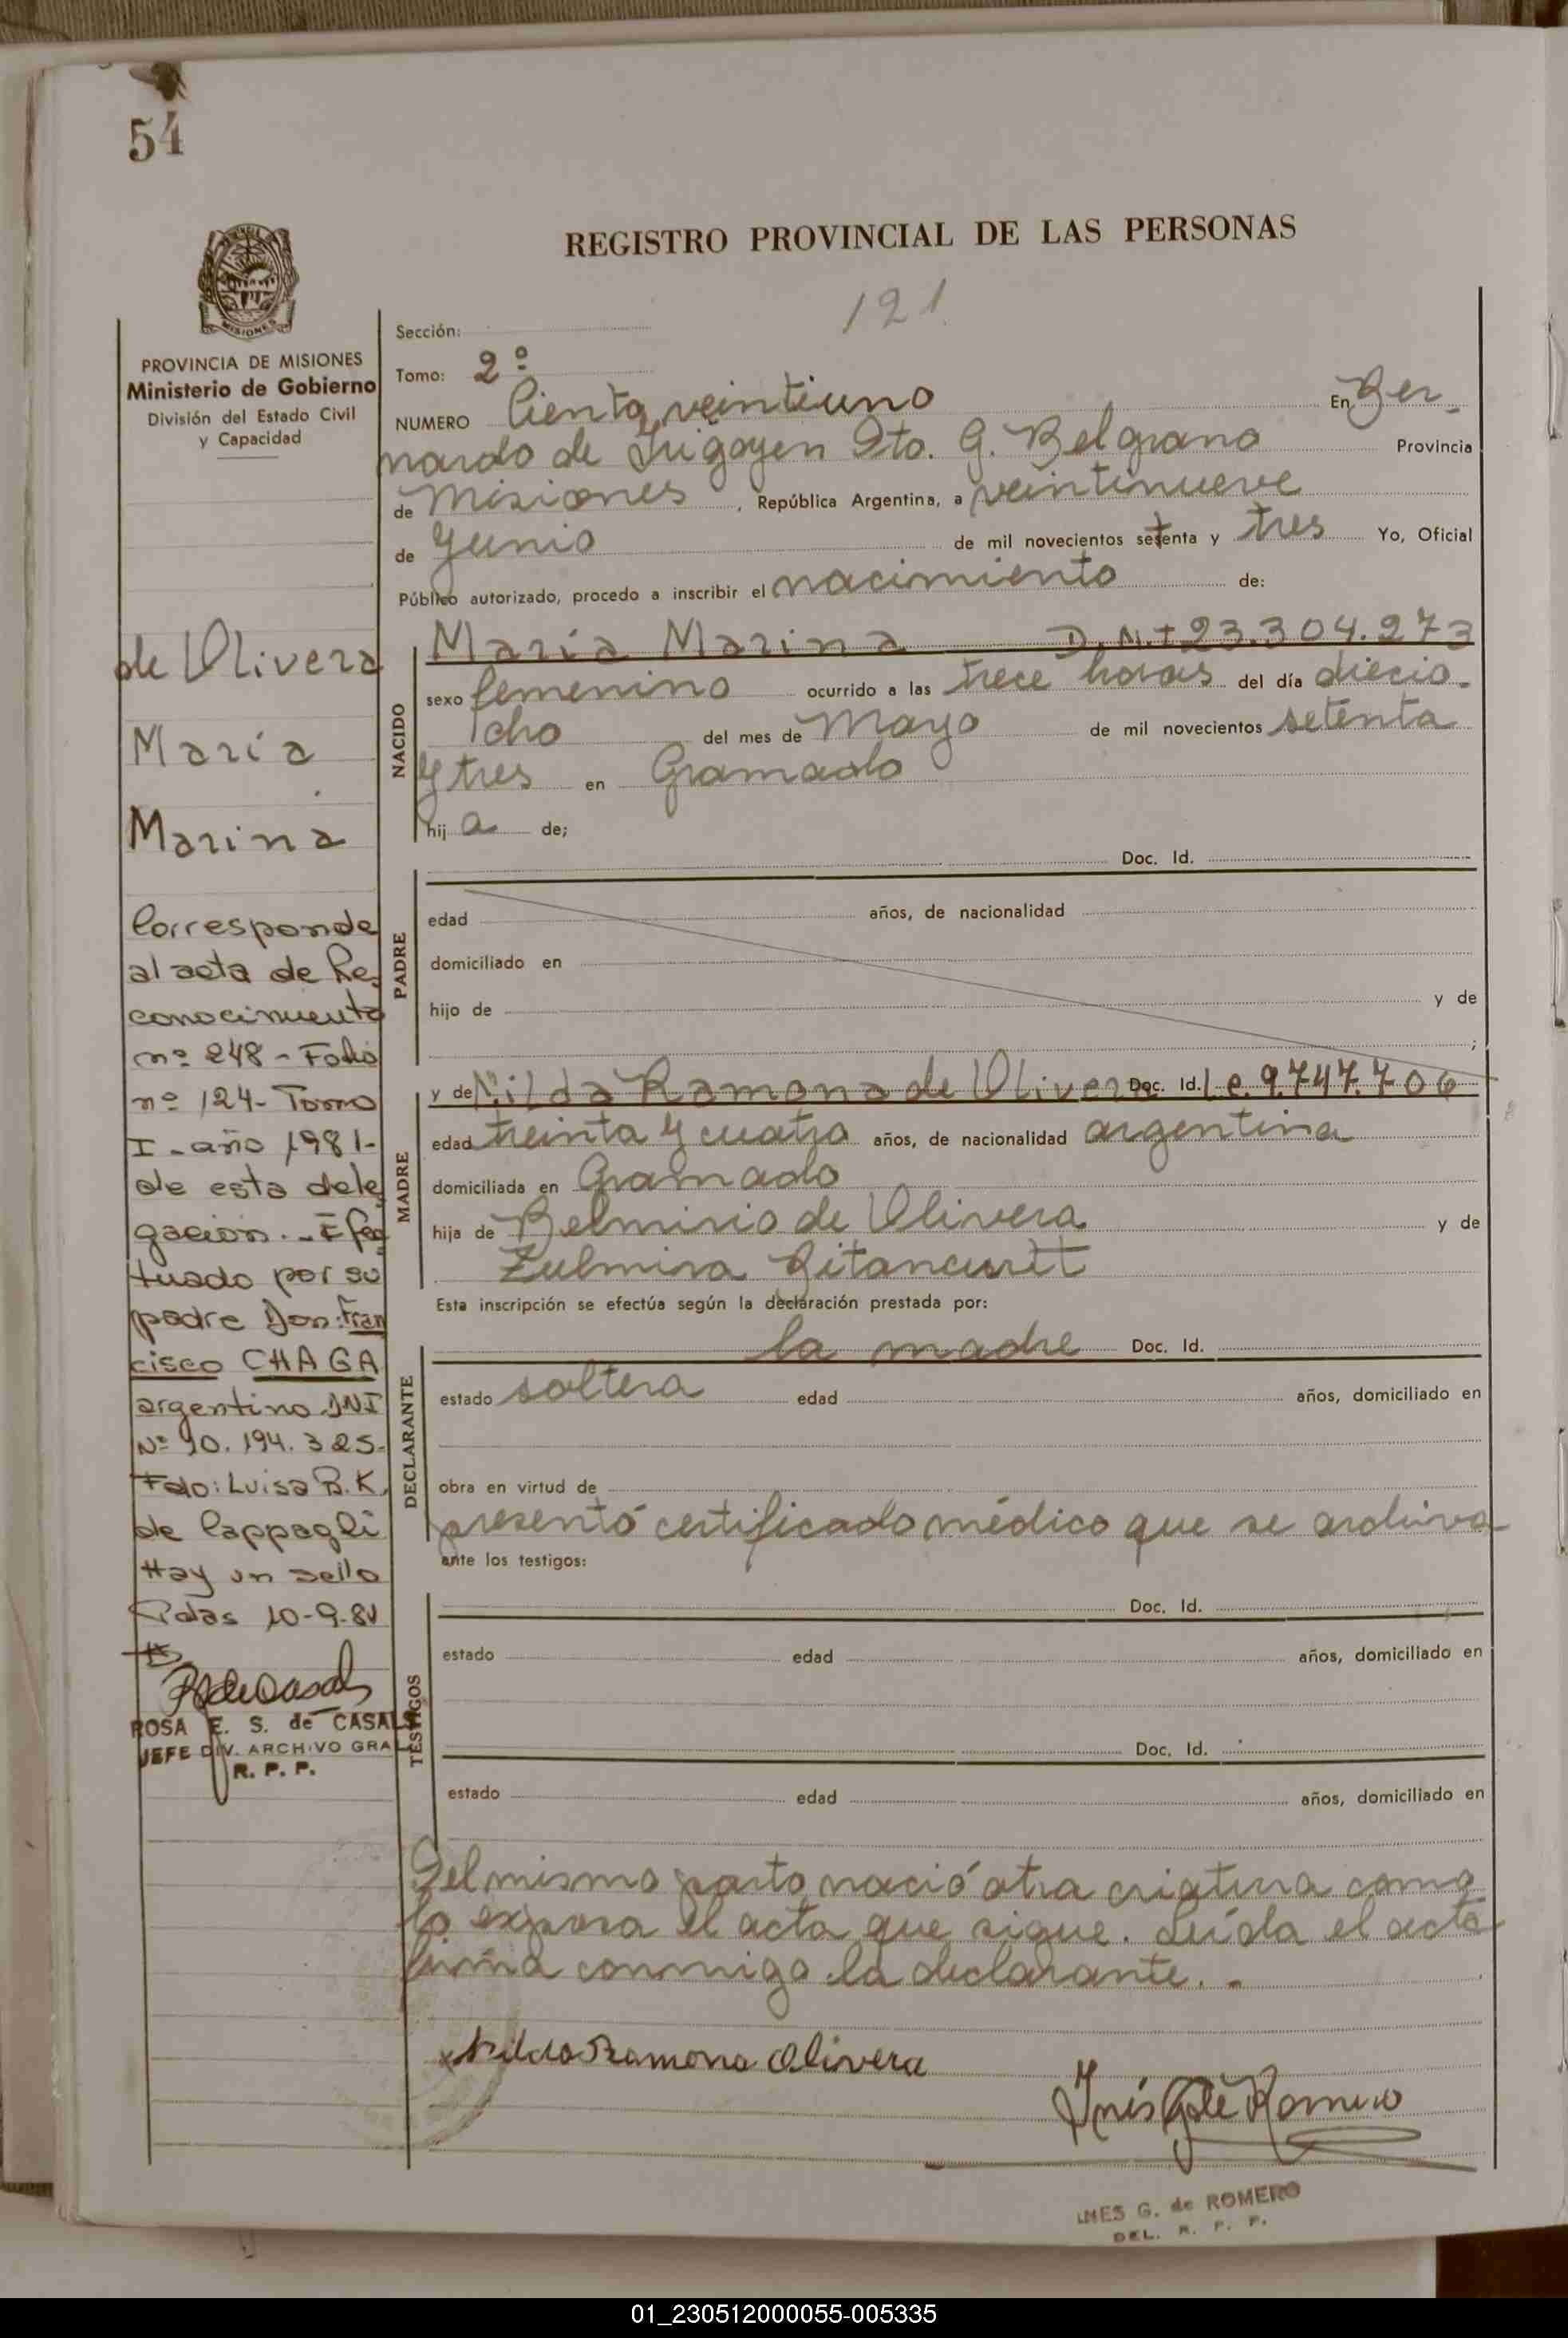 54
REGISTRO PROVINCIAL DE LAS PERSONAS
121
MISIONES
PROVINCIA DE MISIONES
Ministerio de Gobierno
División del Estado Civil
y Capacidad
de Olivera
María
Marina
Corresponde
al acta de Re
conocimiento
nº 248 - Folio
nº 124 - Tomo
I - año 1981 -
de esta dele
gación. - Efec
tuado por su
padre Don: Fran
cisco CHAGA
argentino DNI
Nº 10.194.325 -
Fdo: Luisa B. K.
de Cappagli
Hay un sello
Pdas 10-9-81
ROSA E. S. de CASALS
JEFE DIV. ARCHIVO GRAL
R. P. P.
Sección:
Tomo: 2º
NUMERO Ciento veintiuno En Ber_
nardo de Irigoyen Dto. G. Belgrano Provincia
de Misiones, República Argentina, a veintinueve
de Junio de mil novecientos setenta y tres Yo, Oficial
Público autorizado, procedo a inscribir el nacimiento de:
NACIDO
María Marina D.N.I 23.304.273
sexo femenino ocurrido a las trece horas del día diecio_
cho del mes de Mayo de mil novecientos setenta
y tres en Gramado
hij a de;
Doc. Id.
PADRE
edad años, de nacionalidad
domiciliado en
hijo de y de
;
MADRE
y de Nilda Ramona de Olivera Doc. Id. l.c. 9.747.706
edad treinta y cuatro años, de nacionalidad argentina
domiciliada en Gramado
hija de Belmirio de Olivera y de
Zulmira Bitancurtt
Esta inscripción se efectúa según la declaración prestada por:
DECLARANTE
la madre Doc. Id.
estado soltera edad años, domiciliado en
obra en virtud de
presentó certificado médico que se archiva
ante los testigos:
TESTIGOS
Doc. Id.
estado edad años, domiciliado en
Doc. Id.
estado edad años, domiciliado en
Del mismo parto nació otra criatura como
lo expresa el acta que sigue. Leída el acta
firma conmigo la declarante. -
x Nilda Ramona Olivera
Inés G. de Romero
INES G. de ROMERO
DEL. R. P. P.
01_230512000055-005335